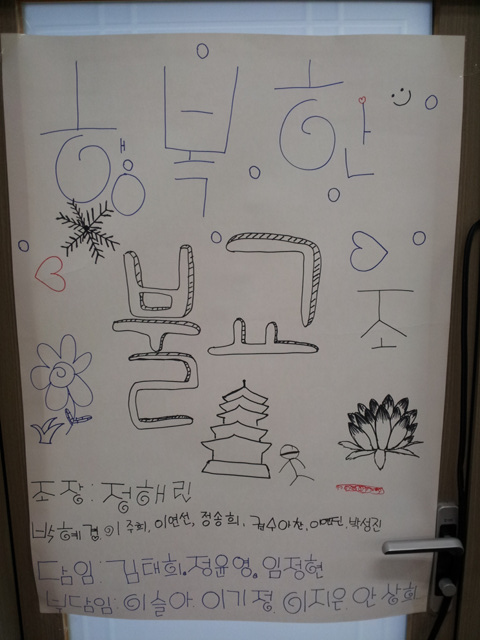 행복한
불교 조
조장: 정해린
박혜결, 이주희, 이연선, 정송희, 박성진
담임: 김태희, 정윤영, 임정현
부담임: 이슬아, 이기정, 이지은, 안상희